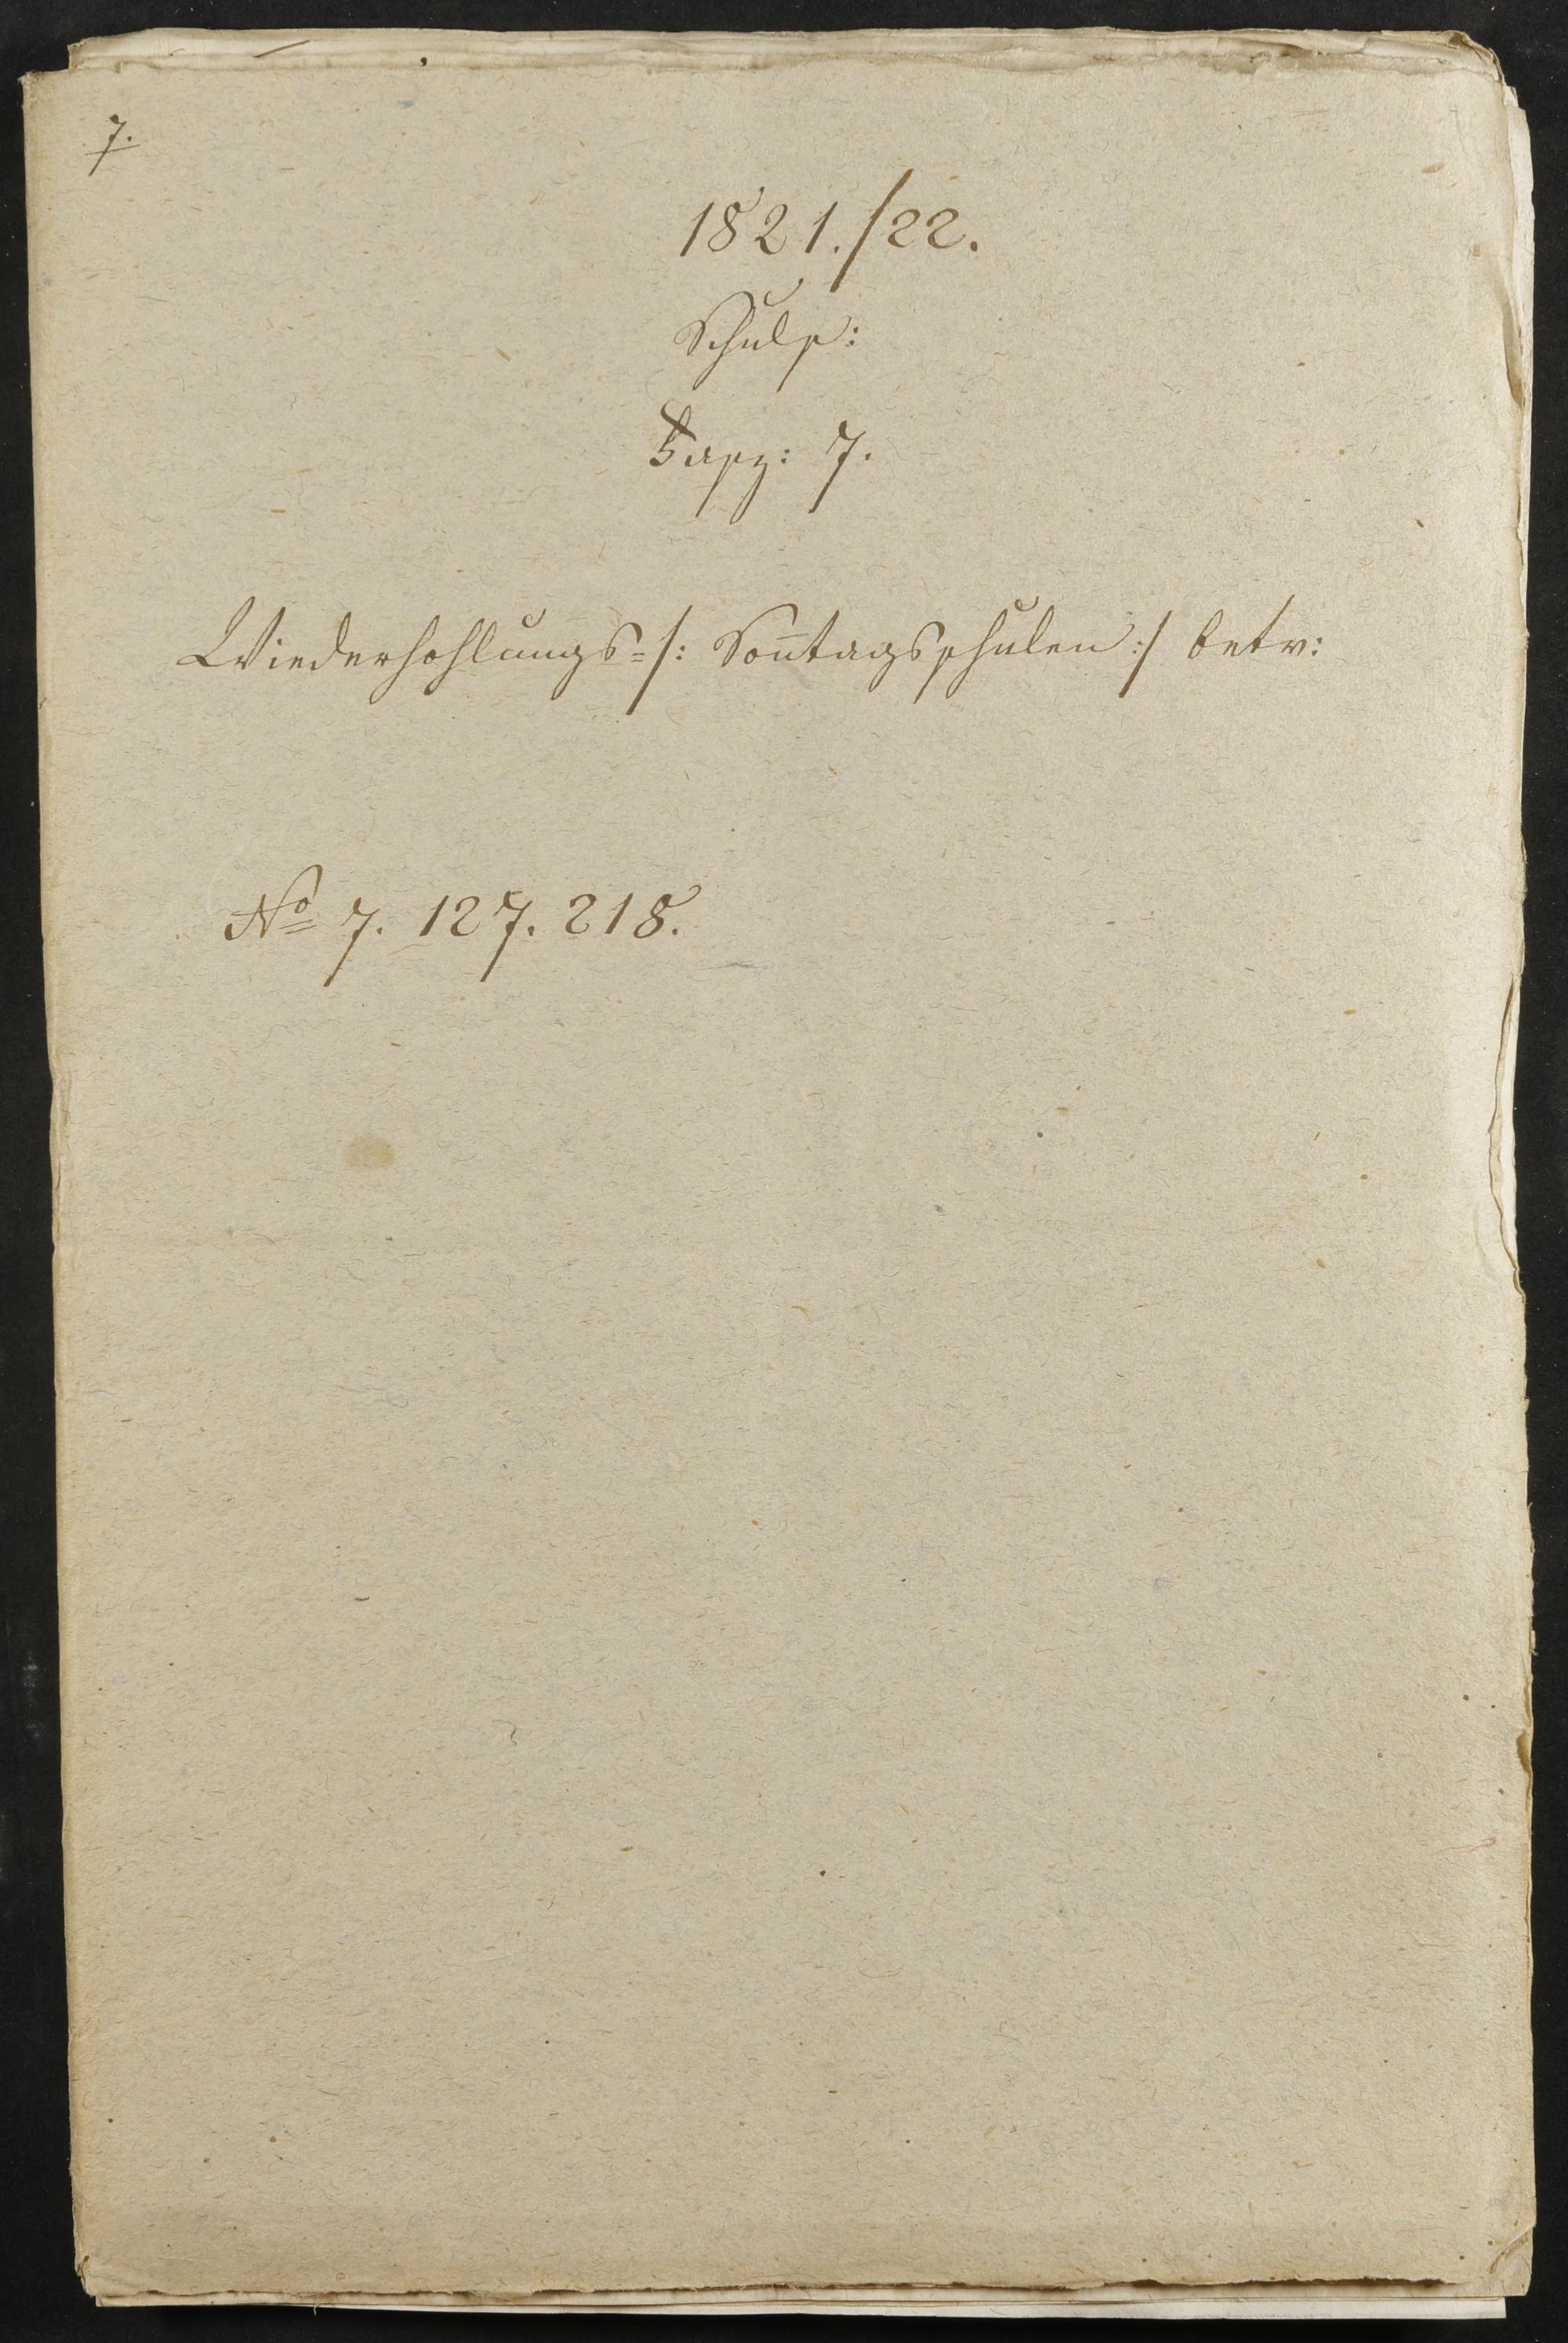 7.
1821./22.
Schuls:
Fasz: 7.
Wiederhohlungs=/: Son̅tagsschulen :/ betr:
No 7. 127. 218.